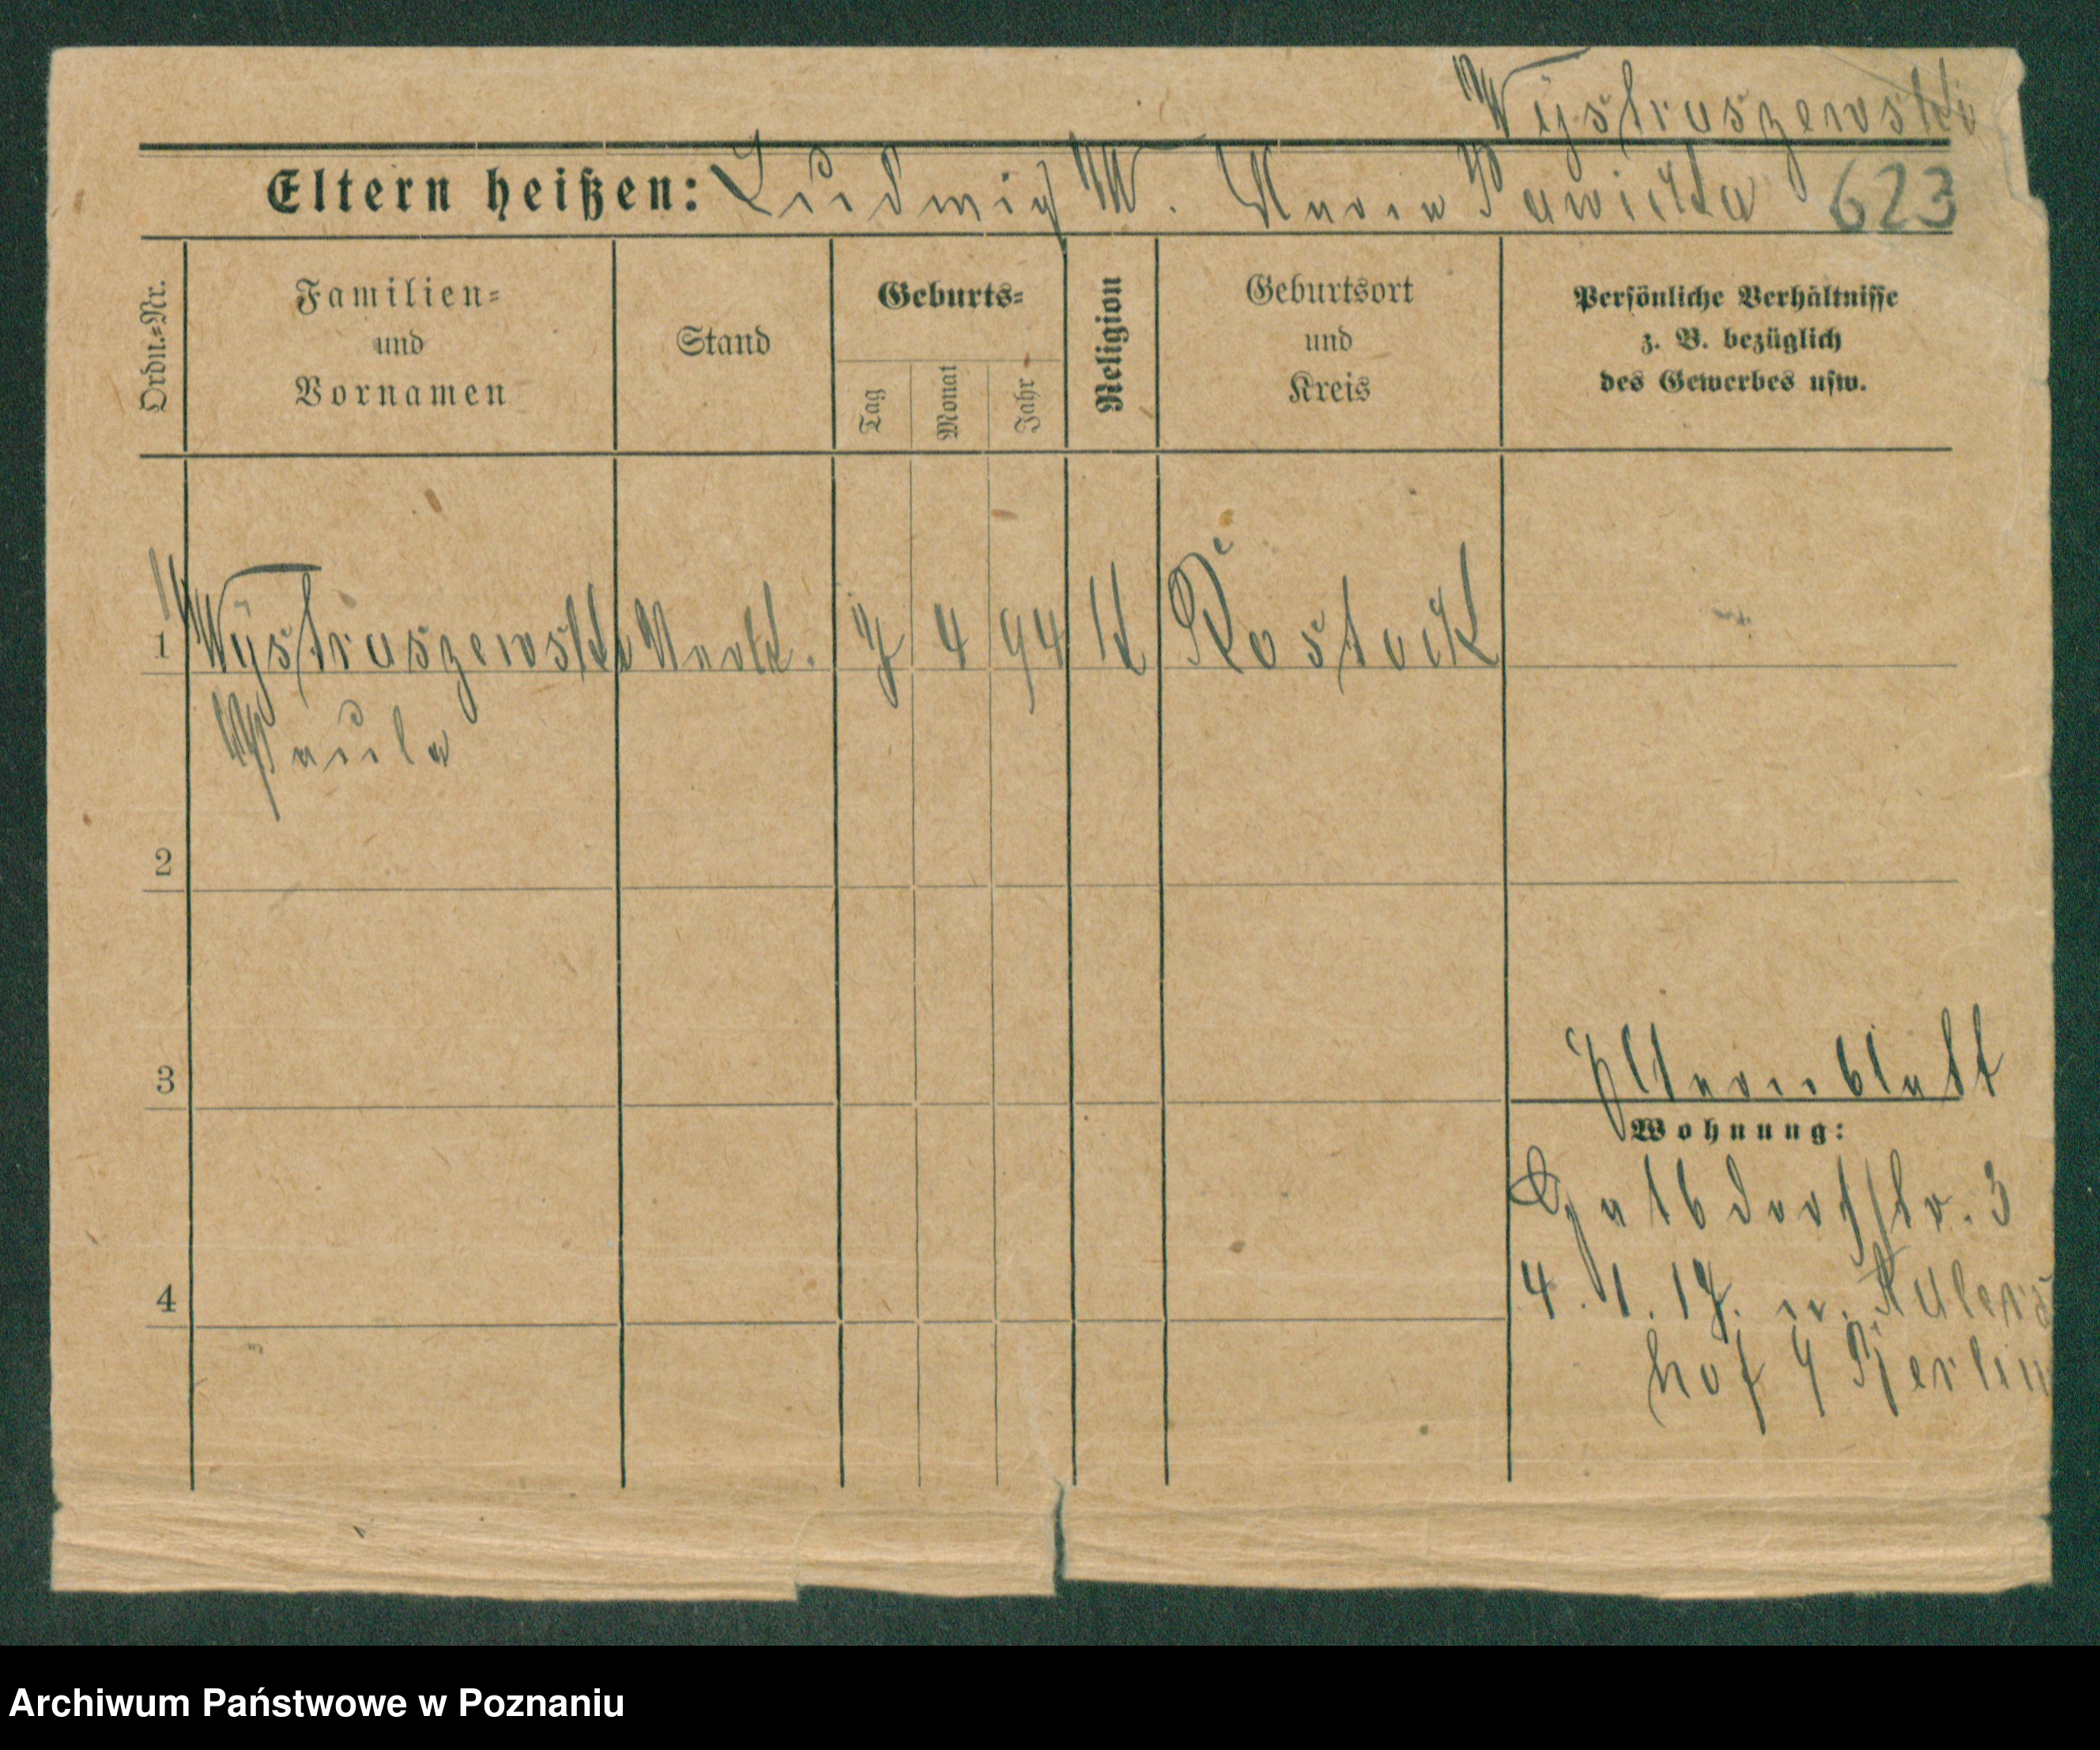 Wystraszewski
Eltern heißen: Ludwig W. Maria Pawicka 623
Ordn.=Nr.
Familien=
und
Vornamen
Stand
Geburts=
Tag
Monat
Jahr
Religion
Geburtsort
und
Kreis
Persönliche Verhältnisse
z. B. bezüglich
des Gewerbes usw.
1 Wystraszewski 7 4 94 k Rostock
Paula
2
3
Elternblatt
Wohnung:
4
4. 1. 17. n.
hof 4 Berlin
Archiwum Państwowe w Poznaniu